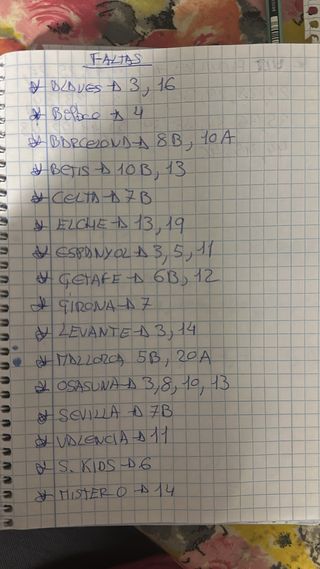 FALTAS
ALAVES → 3, 16
Bilbao → 4
BARCELONA → 8B, 10A
BETIS → 10B, 13
CELTA → 7B
ELCHE → 13, 19
ESPANYOL → 3, 5, 11
GETAFE → 6B, 12
GIRONA → 7
LEVANTE → 3, 14
MALLORCA 5B, 20A
OSASUNA → 3, 8, 10, 13
SEVILLA → 7B
VALENCIA → 11
S. KIDS → 6
MISTER O → 14